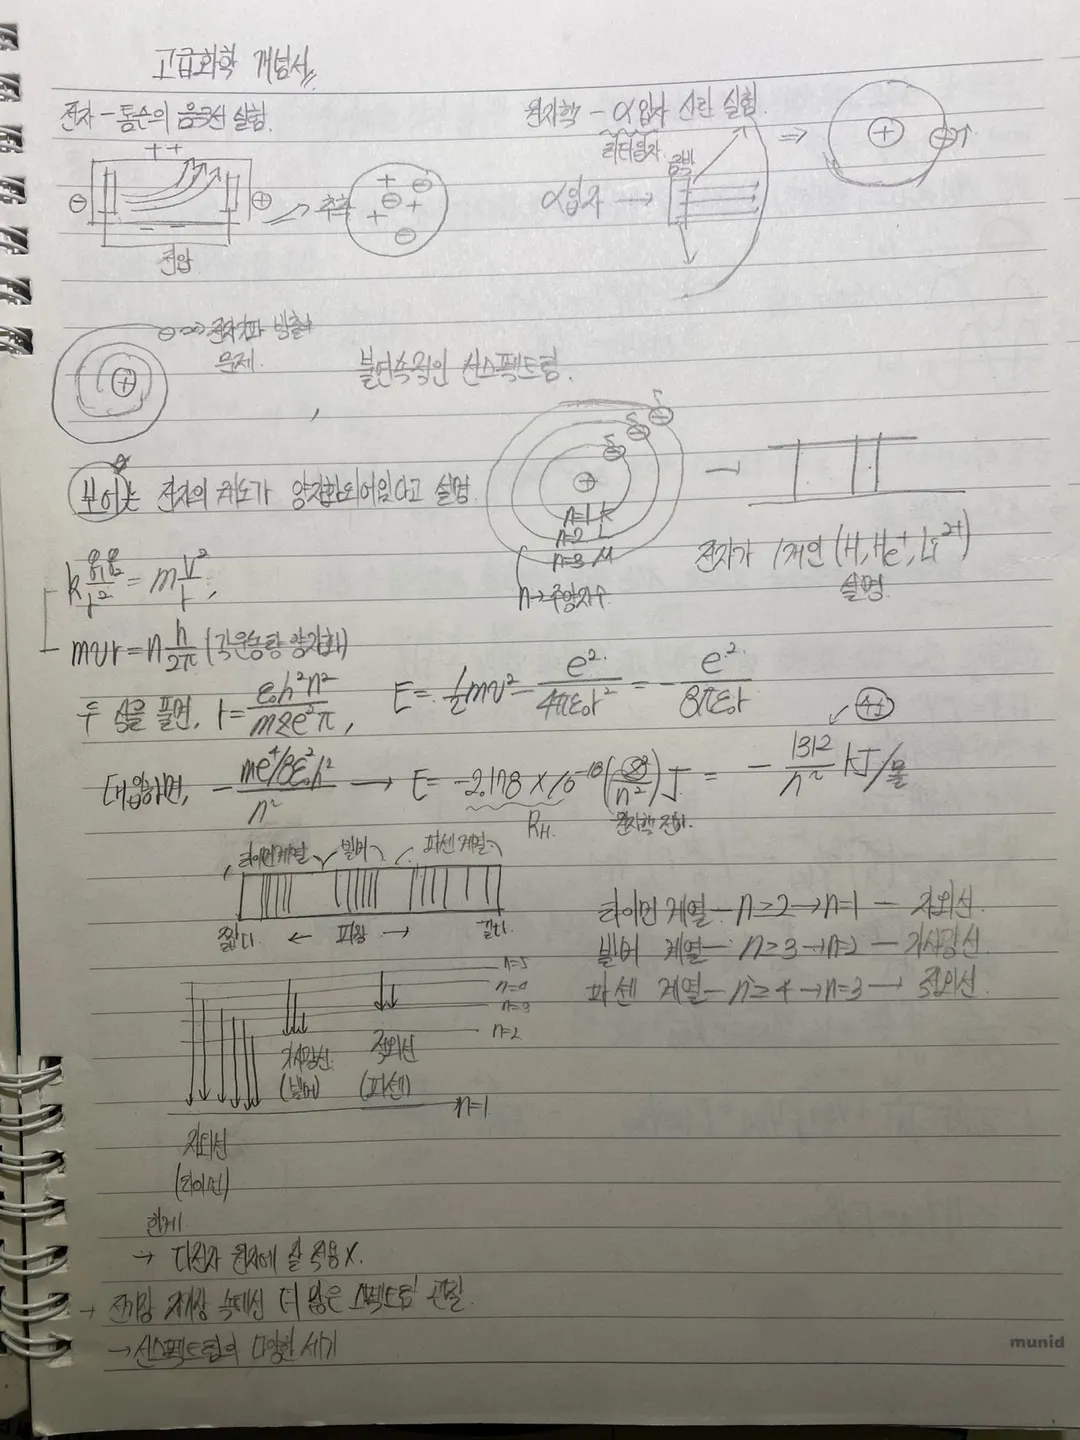 고급화학 개념서
전자 - 톰슨의 음극선 실험.
원자핵 - α입자 산란 실험.
러더퍼드
금박
+ +
⊖ ⊕
전압
α입자 →
⇒
+ ⊖
⊖ +
+
⊖
⊕ ⊖
⊖ → 전자기파 방출
문제.
불연속적인 선스펙트럼.
⊕
보어는 전자의 궤도가 양자화되어있다고 설명
⊕
n=1 K
n=2 L
n=3 M
n → 주양자수
전자가 1개인 (H, He⁺, Li²⁺)
설명
k q₁q₂/r² = m v²/r,
mvr = n h/2π (각운동량 양자화)
두 식을 풀면, r = ε₀h²n²/mze²π, E = ½mv² - e²/4πε₀r² = - e²/8πε₀r
대입하면, - me⁴/8ε₀²h² / n² → E = -2.178 × 10⁻¹⁸ ( /n²) J = - 1312/n² kJ/몰
R_H.
원자핵 전하.
라이먼계열 발머 파센 계열
짧다. ← 파장 → 길다.
라이먼 계열 - n≥2 → n=1 - 자외선.
발머 계열 - n≥3 → n=2 - 가시광선.
파센 계열 - n≥4 → n=3 - 적외선.
n=5
n=4
n=3
n=2
가시광선
(발머)
적외선
(파센)
n=1
자외선
(라이먼)
한계
→ 다전자 원자에 잘 적용 X.
→ 전기장 자기장 속에선 더 많은 스펙트럼 관찰.
→ 선스펙트럼의 다양한 세기
munid